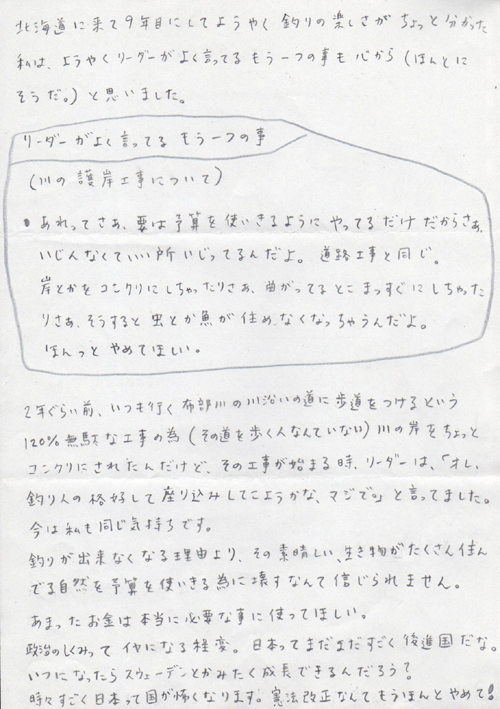 北海道に来て9年目にしてようやく釣りの楽しさがちょっと分かった
私は、ようやくリーダーがよく言ってるもう一つの事も心から(ほんとに
そうだ。)と思いました。
リーダーがよく言ってるもう一つの事
(川の護岸工事について)
・あれってさあ、要は予算を使いきるようにやってるだけだからさあ、
いじんなくていい所いじってるんだよ。道路工事と同じ。
岸とかをコンクリにしちゃったりさあ、曲がってるとこまっすぐにしちゃった
りさあ、そうすると虫とか魚が住めなくなっちゃうんだよ。
ほんっとやめてほしい。
2年ぐらい前、いつも行く布部川の川沿いの道に歩道をつけるという
120%無駄な工事の為(その道を歩く人なんていない)川の岸をちょっと
コンクリにされたんだけど、その工事が始まる時、リーダーは、「オレ、
釣り人の格好して座り込みしてこようかな、マジで。」と言ってました。
今は私も同じ気持ちです。
釣りが出来なくなる理由より、その素晴しい、生き物がたくさん住ん
でる自然を予算を使いきる為に壊すなんて信じられません。
あまったお金は本当に必要な事に使ってほしい。
政治のしくみってイヤになる程変。日本ってまだまだすごく後進国だな。
いつになったらスウェーデンとかみたく成長できるんだろう?
時々すごく日本って国が怖くなります。憲法改正なんてもうほんとやめて!